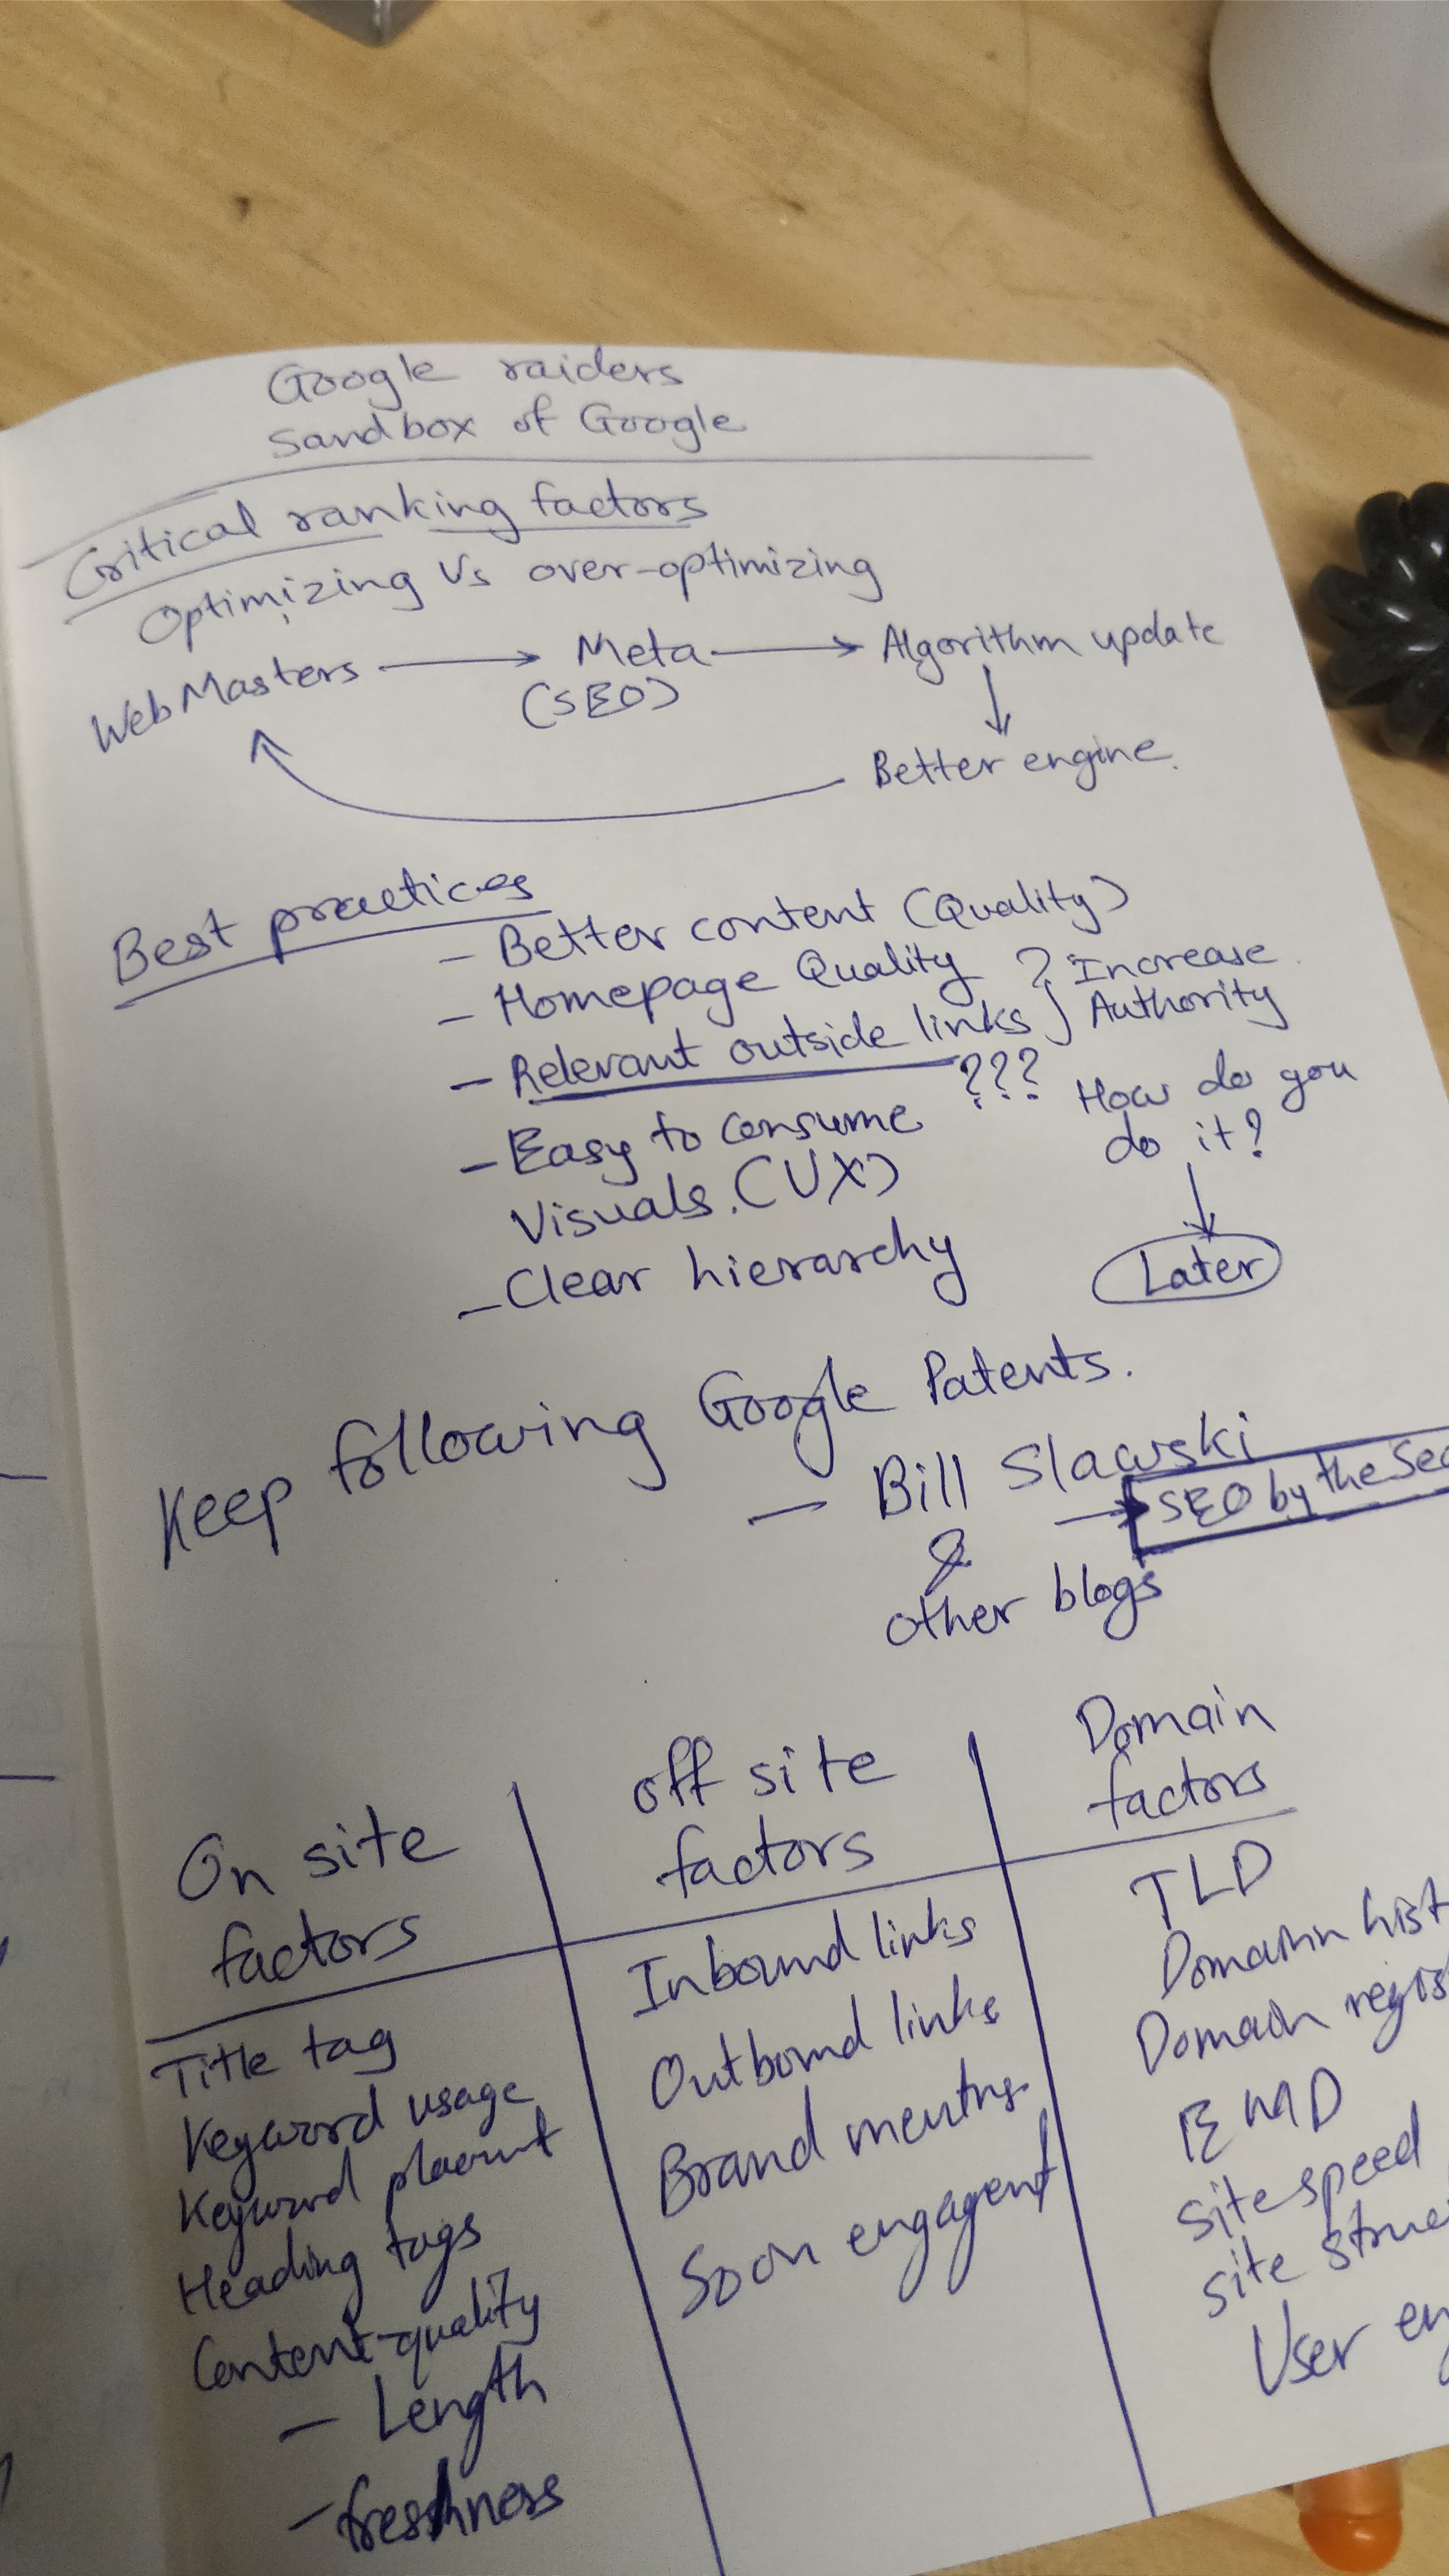 Google raiders
Sandbox of Google
Critical ranking factors
Optimizing Vs over-optimizing
WebMasters → Meta → Algorithm update
(SEO) ↓
Better engine.
Best practices
– Better content (Quality)
– Homepage Quality } Increase
– Relevant outside links Authority
??? How do you
– Easy to consume do it?
Visuals. (UX) ↓
– Clear hierarchy Later
Keep following Google Patents.
– Bill Slawski
→ SEO by the Sea
&
other blogs
On site factors
Title tag
Keyword usage
Keyword
Heading tags
Content quality
– Length
– freshness
off site factors
Inbound links
Outbound links
Brand
Domain factors
TLD
Domain hist
Domain regis
EMD
site speed
site struc
User en